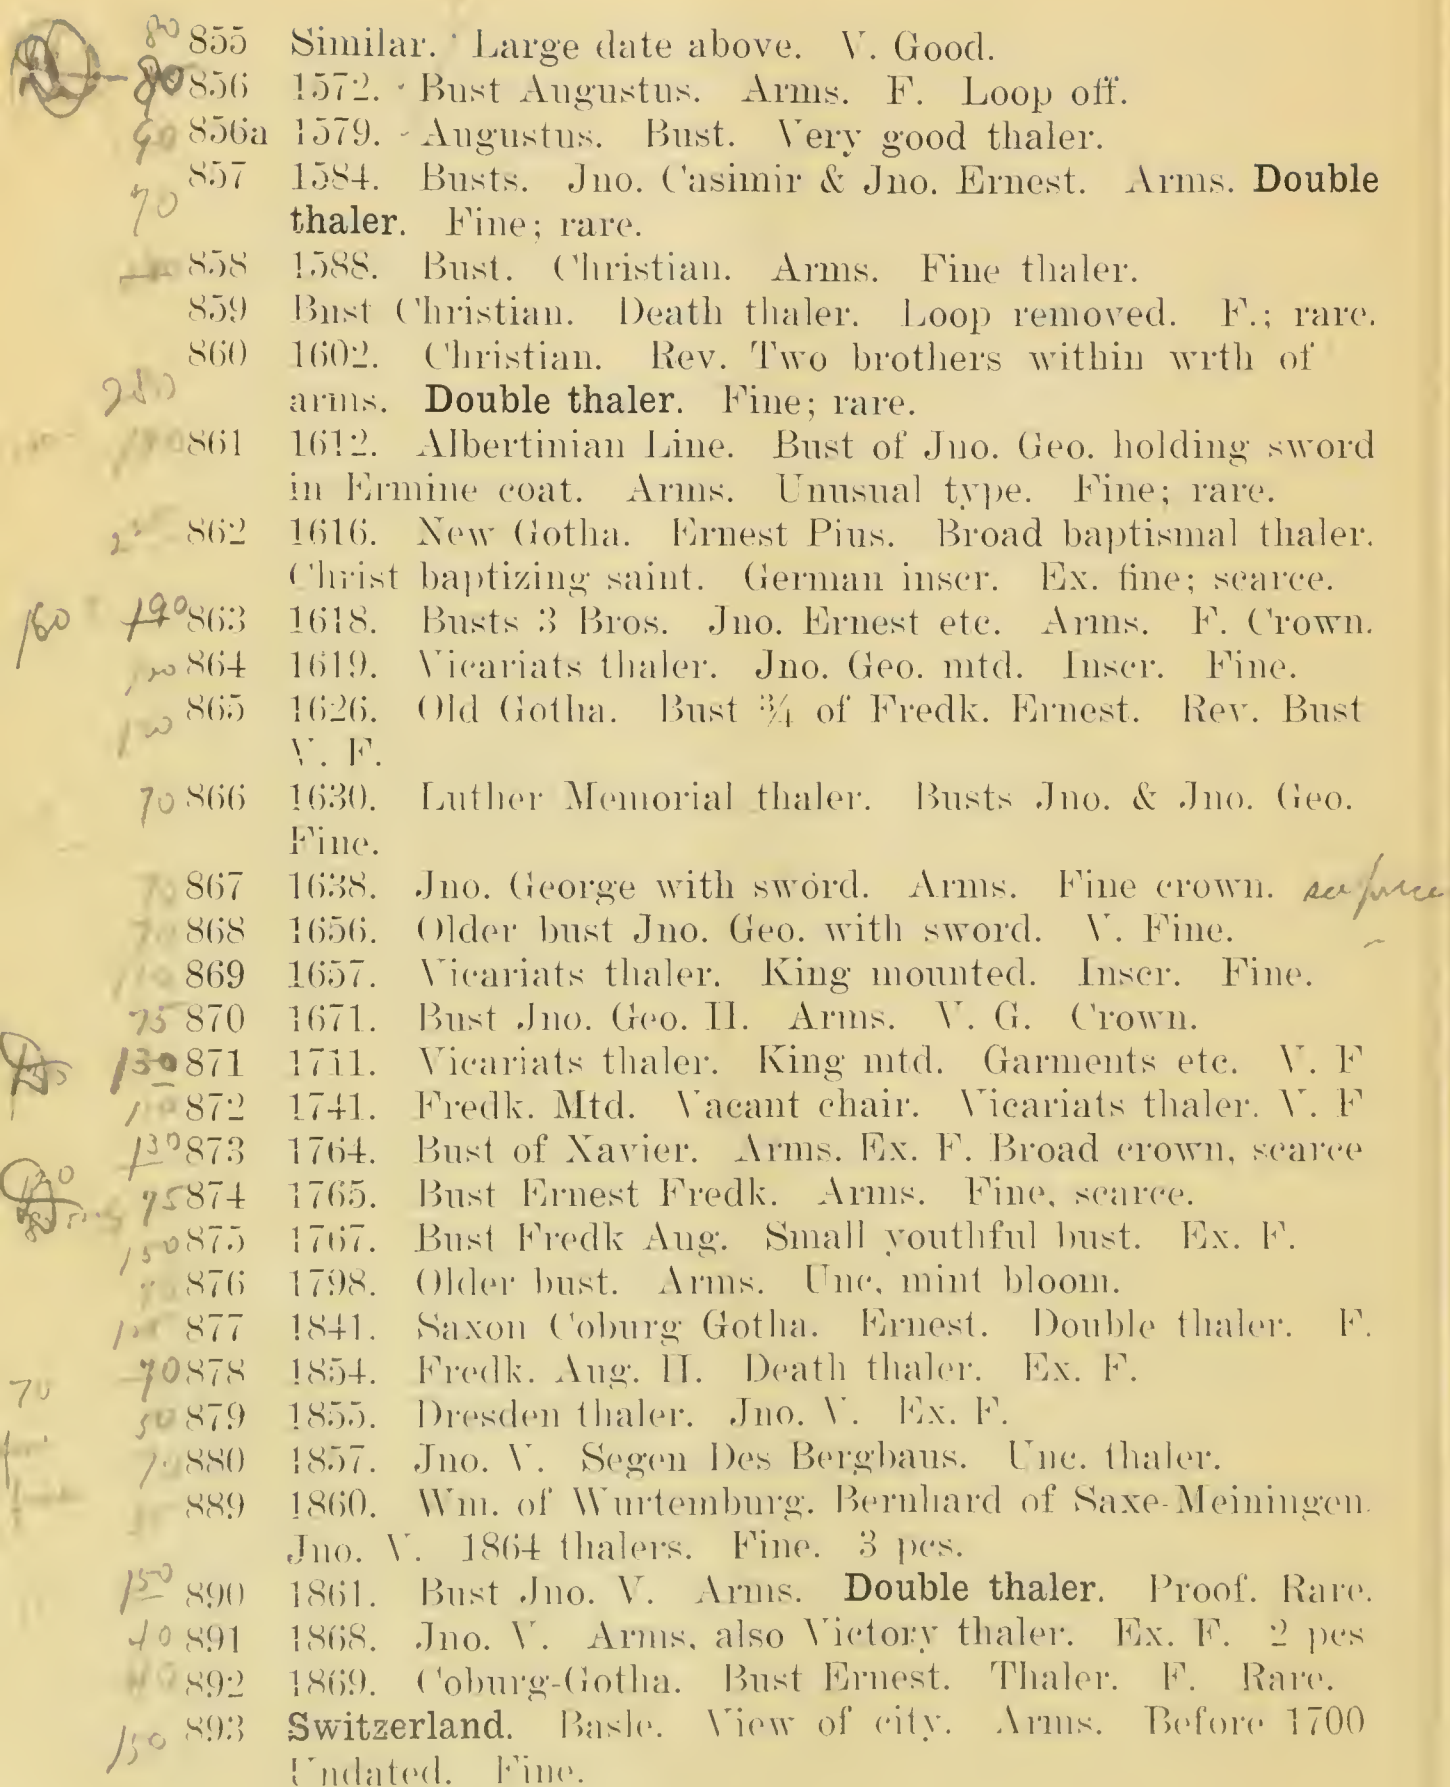 80 855 Similar. Large date above. V. Good.
80 856 1572. Bust Augustus. Arms. F. Loop off.
90 856a 1579. Augustus. Bust. Very good thaler.
857 1584. Busts. Jno. Casimir & Jno. Ernest. Arms. Double
70 thaler. Fine; rare.
858 1588. Bust. Christian. Arms. Fine thaler.
859 Bust Christian. Death thaler. Loop removed. F.; rare.
860 1602. Christian. Rev. Two brothers within wrth of
arms. Double thaler. Fine; rare.
861 1612. Albertinian Line. Bust of Jno. Geo. holding sword
in Ermine coat. Arms. Unusual type. Fine; rare.
862 1616. New Gotha. Ernest Pius. Broad baptismal thaler.
Christ baptizing saint. German inscr. Ex. fine; scarce.
190 863 1618. Busts 3 Bros. Jno. Ernest etc. Arms. F. Crown.
864 1619. Vicariats thaler. Jno. Geo. mtd. Inscr. Fine.
865 1626. Old Gotha. Bust ¾ of Fredk. Ernest. Rev. Bust
V. F.
70 866 1630. Luther Memorial thaler. Busts Jno. & Jno. Geo.
Fine.
70 867 1638. Jno. George with sword. Arms. Fine crown.
70 868 1656. Older bust Jno. Geo. with sword. V. Fine.
110 869 1657. Vicariats thaler. King mounted. Inscr. Fine.
75 870 1671. Bust Jno. Geo. II. Arms. V. G. Crown.
130 871 1711. Vicariats thaler. King mtd. Garments etc. V. F
110 872 1741. Fredk. Mtd. Vacant chair. Vicariats thaler. V. F
130 873 1764. Bust of Xavier. Arms. Ex. F. Broad crown, scarce
75 874 1765. Bust Ernest Fredk. Arms. Fine, scarce.
150 875 1767. Bust Fredk Aug. Small youthful bust. Ex. F.
876 1798. Older bust. Arms. Unc, mint bloom.
877 1841. Saxon Coburg Gotha. Ernest. Double thaler. F.
70 70 878 1854. Fredk. Aug. II. Death thaler. Ex. F.
50 879 1855. Dresden thaler. Jno. V. Ex. F.
880 1857. Jno. V. Segen Des Bergbaus. Unc. thaler.
889 1860. Wm. of Wurtemburg. Bernhard of Saxe-Meiningen.
Jno. V. 1864 thalers. Fine. 3 pcs.
150 890 1861. Bust Jno. V. Arms. Double thaler. Proof. Rare.
40 891 1868. Jno. V. Arms, also Victory thaler. Ex. F. 2 pcs
892 1869. Coburg-Gotha. Bust Ernest. Thaler. F. Rare.
150 893 Switzerland. Basle. View of city. Arms. Before 1700
Undated. Fine.